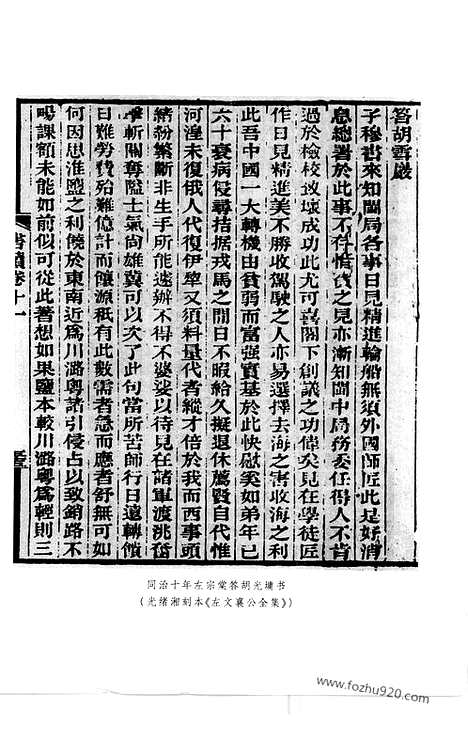 答胡雪巖
子穆書來知閩局各事日見精進輪船無須外國師匠此是好消
息總署於此事不存惜費之見亦漸知閩中局務委任得人不肯
過於檢校致壞成功此尤可喜閣下創議之功偉矣見在學徒匠
作日見精進美不勝收駕駛之人亦易選擇去海之害收海之利
此吾中國一大轉機由貧弱而富強實基於此快慰奚如弟年已
六十衰病侵尋拮据戎馬之間日不暇給久擬退休薦賢自代惟
河湟未復俄人代復伊犂又須料量代者縱才倍於我而西事頭
緒紛繁斷非生手所能速辦不得不婆娑以待見在諸軍渡洮舊
斬關奪隘士氣尚雄冀可以次了此句當所苦師行日遠轉饋
日難勞費殆難億計而饟源祇有此數需者急而應者舒無可如
何因思淮鹽之利饒於東南近爲川潞粵諸引侵占以致銷路不
暢課額未能如前似可從此著想如果鹽本較川潞粵爲輕則三
書牘卷十一
同治十年左宗棠答胡光墉书
(光绪湘刻本《左文襄公全集》)
www.fozhu920.com